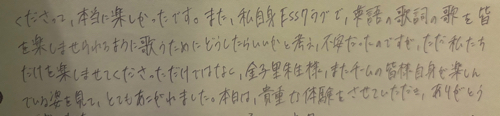 くださって、本当に楽しかったです。また、私自身ESSクラブで、英語の歌詞の歌を皆
を楽しませられるように歌うためにどうしたらいいかと考え、不安だったのですが、ただ私たち
だけを楽しませてくださっただけではなく、金子里朱様、またチームの皆様自身が楽しん
でいる姿を見て、とてもあこがれました。本日は、貴重な体験をさせていただき、ありがとう